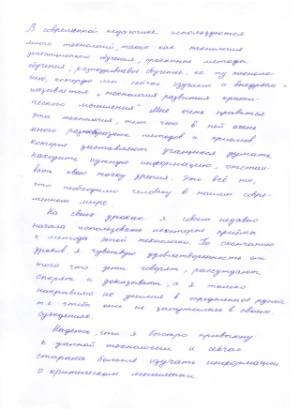 В современной педагогике используются
много технологий, такие как технология
дистанционного обучения, проектные методы
обучения, разноуровневое обучение. но ту техноло-
гию, которую мы сейчас изучаем и внедряем
называется „технология развития крити-
ческого мышления" Мне очень нравится
эта технология, тем что в ней очень
много разнообразных методов и приемов,
которые заставляют учащихся думать,
находить нужную информацию, отстаи-
вать свою точку зрения. Это всё то,
что необходимо человеку в нашем совре-
менном мире.
На своих уроках я совсем недавно
начала использовать некоторые приёмы
и методы этой технологии. По окончанию
уроков, я чувствую удовлетворенность от
того что дети говорят, рассуждают,
спорят и доказывают, а я только
направляю их знания в определенное русло
т.е. чтоб они не запутались в своих
суждениях.
Надеюсь, что я быстро привыкну
к данной технологии и сейчас
стараюсь больше изучать информации
о критическом мышлении.